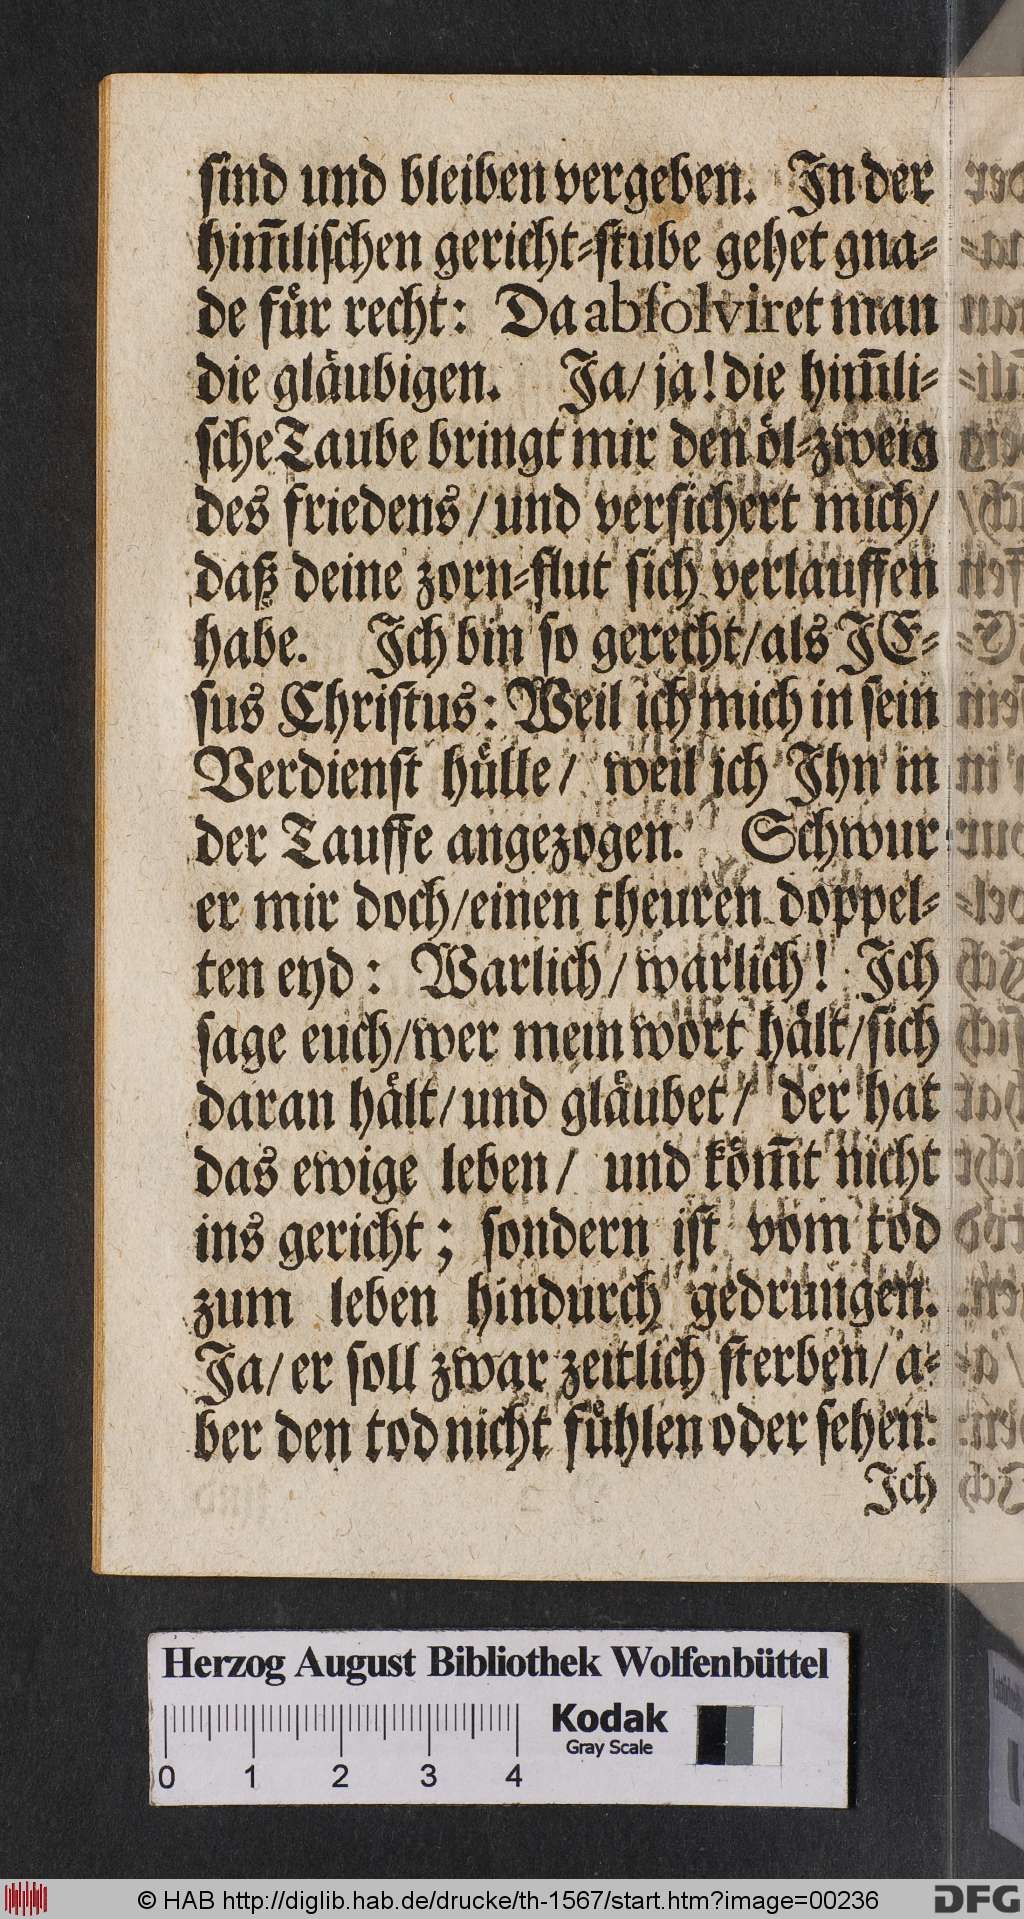 sind und bleiben vergeben. In der
him̃lischen gericht-stube gehet gna-
de fuͤr recht: Da absolviret man
die glaͤubigen. Ja/ ja! die him̃li-
sche Taube bringt mir den oͤl-zweig
des friedens/ und versichert mich/
daß deine zorn-flut sich verlauffen
habe. Ich bin so gerecht/ als JE-
sus Christus: Weil ich mich in sein
Verdienst huͤlle/ weil ich Ihn in
der Tauffe angezogen. Schwur
er mir doch/ einen theuren doppel-
ten eyd: Warlich/ warlich! Ich
sage euch/ wer mein wort haͤlt/ sich
daran haͤlt/ und glaͤubet/ der hat
das ewige leben/ und koͤm̃t nicht
ins gericht; sondern ist vom tod
zum leben hindurch gedrungen.
Ja/ er soll zwar zeitlich sterben/ a-
ber den tod nicht fuͤhlen oder sehen:
Ich
Herzog August Bibliothek Wolfenbüttel
0 1 2 3 4
Kodak
Gray Scale
© HAB http://diglib.hab.de/drucke/th-1567/start.htm?image=00236
DFG